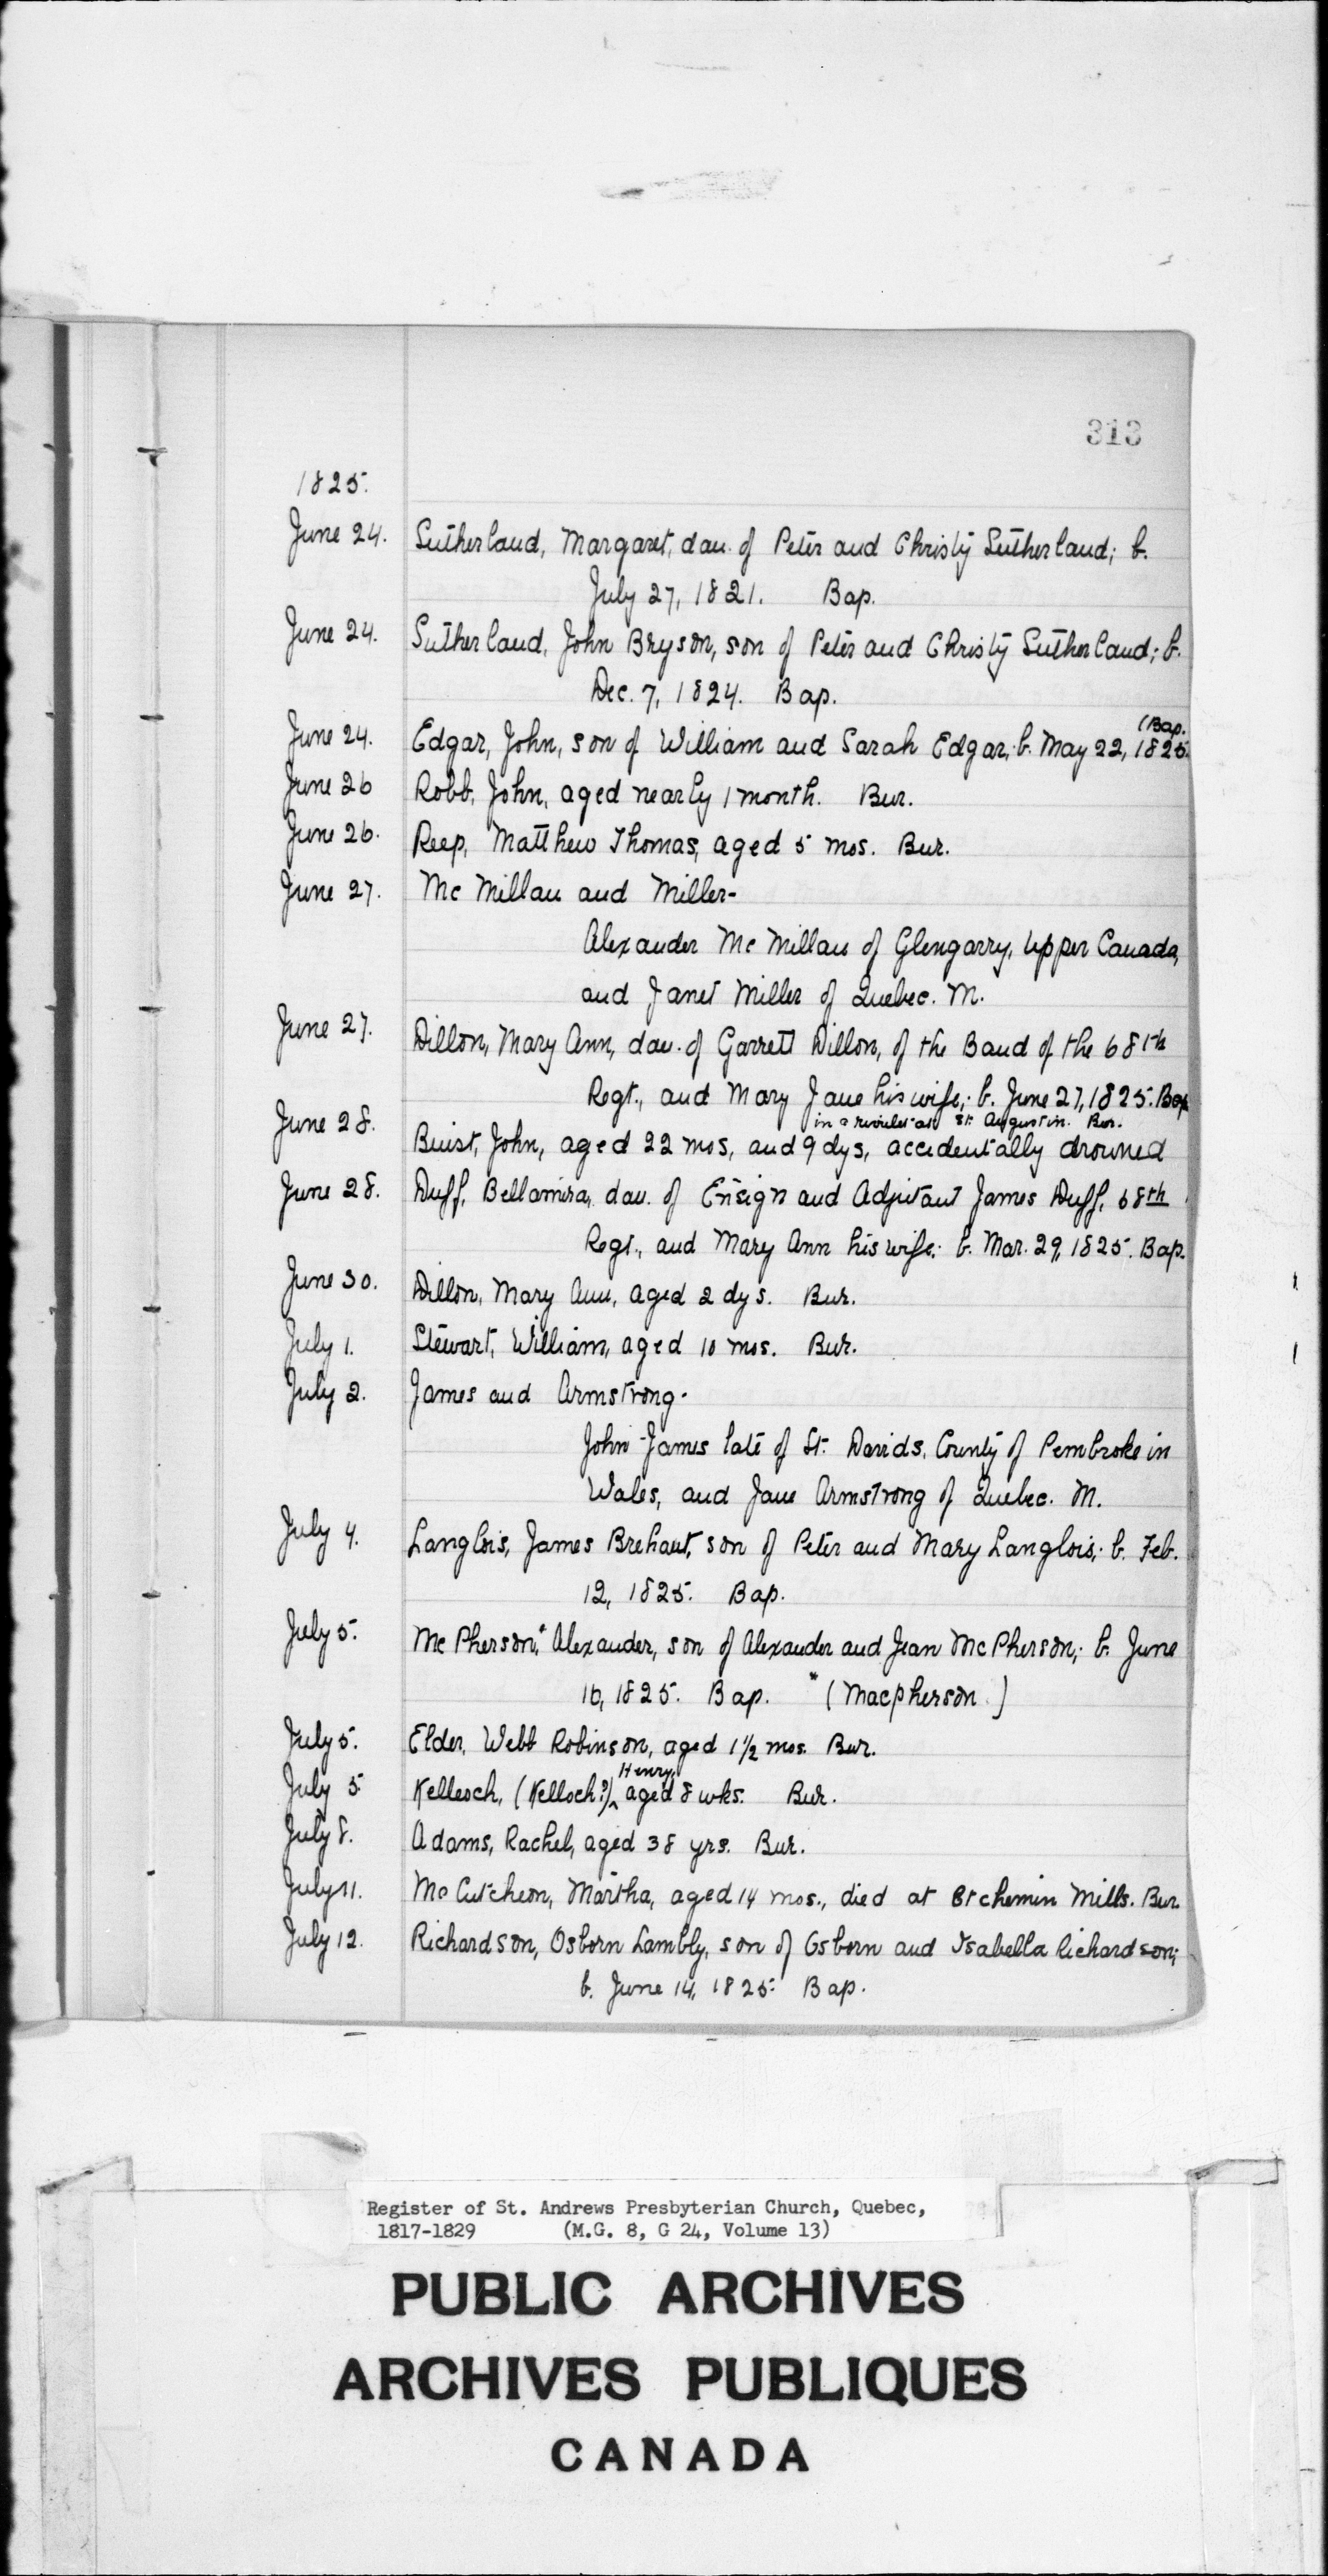 313
1825.
June 24. Sutherland, Margaret, dau. of Peter and Christy Sutherland; b.
July 27, 1821. Bap.
June 24. Sutherland, John Bryson, son of Peter and Christy Sutherland; b.
Dec. 7, 1824. Bap.
(Bap.
June 24. Edgar, John, son of William and Sarah Edgar; b. May 22, 1825.
June 26 Robb, John, aged nearly 1 month. Bur.
June 26. Reep, Matthew Thomas, aged 5 mos. Bur.
June 27. Mc Millan and Miller-
Alexander Mc Millan of Glengarry, Upper Canada,
and Janet Miller of Quebec. M.
June 27. Dillon, Mary Ann, dau. of Garrett Dillon, of the Band of the 68th
Regt., and Mary Jane his wife; b. June 27, 1825. Bap.
in a rivulet at St. Augustin. Bur.
June 28. Buist, John, aged 22 mos, and 9 dys, accidentally drowned
June 28. Duff, Bellamira, dau. of Ensign and Adjutant James Duff, 68th
Regt., and Mary Ann his wife; b. Mar. 29, 1825. Bap.
June 30. Dillon, Mary Ann, aged 2 dys. Bur.
July 1. Stewart, William, aged 10 mos. Bur.
July 2. James and Armstrong.
John James late of St. Davids, County of Pembroke in
Wales, and Jane Armstrong of Quebec. M.
July 4. Langlois, James Brehaut, son of Peter and Mary Langlois; b. Feb.
12, 1825. Bap.
July 5. Mc Pherson,* Alexander, son of Alexander and Jean McPherson; b. June
16, 1825. Bap. * (Macpherson.)
July 5. Elder, Webb Robinson, aged 1 1/2 mos. Bur.
Henry,
July 5 Kelleoch, (Kelloch?)^ aged 8 wks. Bur.
July 8. Adams, Rachel, aged 38 yrs. Bur.
July 11. Mc Cutcheon, Martha, aged 14 mos., died at Etchemin Mills. Bur.
July 12. Richardson, Osborn Lambly, son of Osborn and Isabella Richardson;
b. June 14, 1825. Bap.
Register of St. Andrews Presbyterian Church, Quebec,
1817-1829 (M.G. 8, G 24, Volume 13)
PUBLIC ARCHIVES
ARCHIVES PUBLIQUES
CANADA